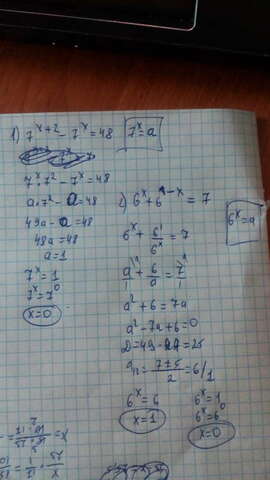 1) 7^{x+2} - 7^x = 48   7^x = a
7^x · 7^2 - 7^x = 48
a · 7^2 - a = 48
49a - a = 48
48a = 48
a = 1
7^x = 1
7^x = 7^0
x = 0
2) 6^x + 6^{1-x} = 7   6^x = a
6^x + 6^1/6^x = 7
a/1 + 6/a = 7/1
a^2 + 6 = 7a
a^2 - 7a + 6 = 0
D = 49 - 24 = 25
= (7 ± 5)/2 = 6/1
6^x = 6   6^x = 1
x = 1   6^x = 6^0
x = 0